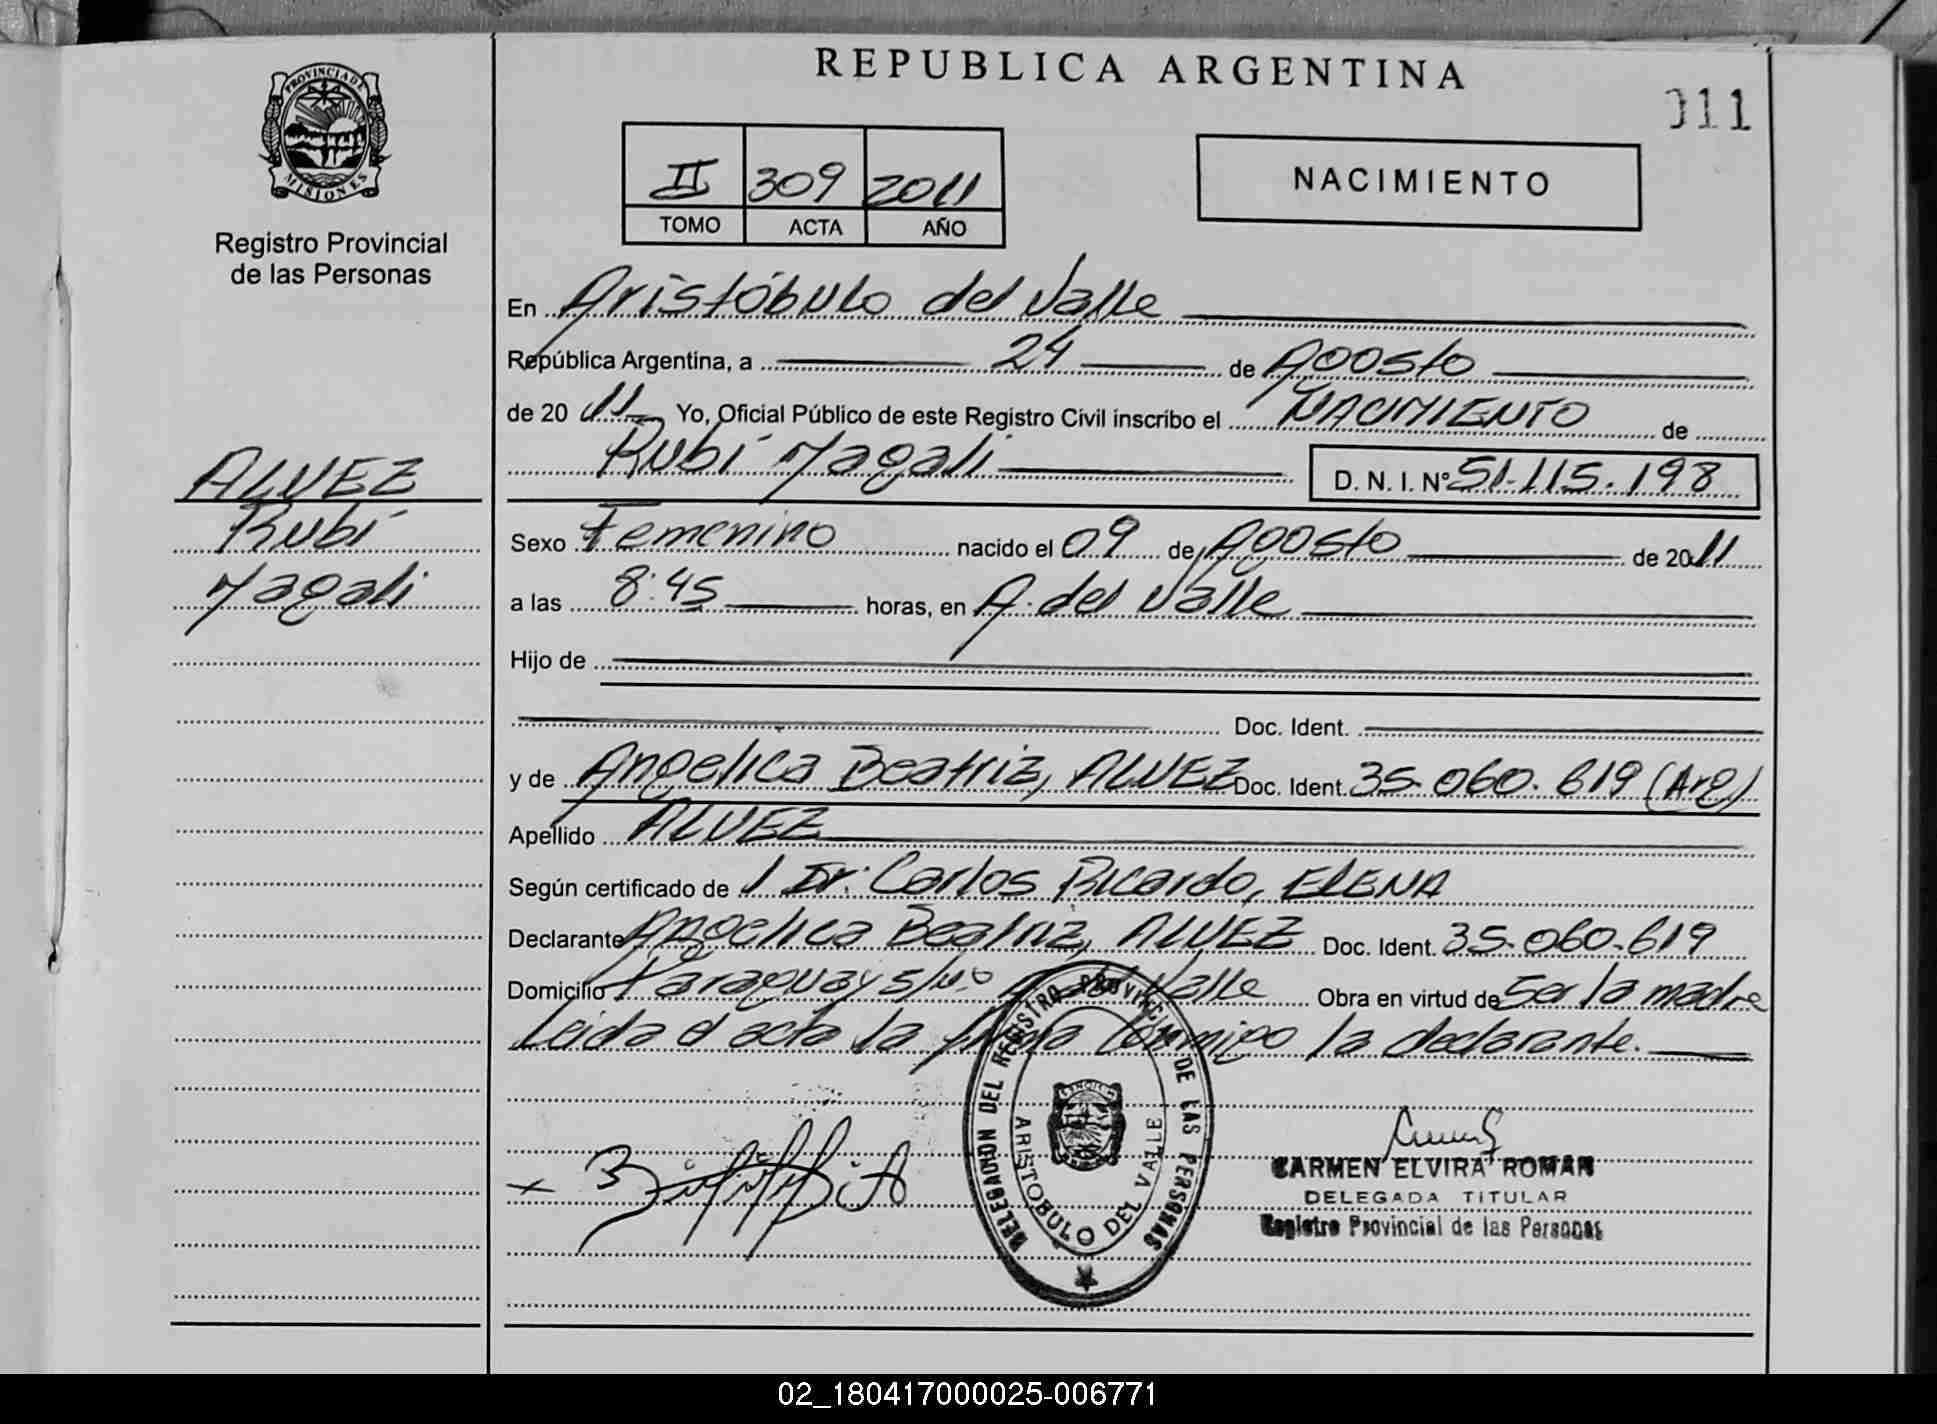 REPUBLICA ARGENTINA
011
PROVINCIA DE
MISIONES
Registro Provincial
de las Personas
II 309 2011
TOMO ACTA AÑO
NACIMIENTO
En Aristóbulo del Valle
República Argentina, a 24 de Agosto
de 2011 Yo, Oficial Público de este Registro Civil inscribo el NACIMIENTO de
Rubí Magali D. N. I. Nº 51.115.198
ALVEZ
Rubí
Magali
Sexo Femenino nacido el 09 de Agosto de 2011
a las 8:45 horas, en A. del Valle
Hijo de
Doc. Ident.
y de Angelica Beatriz, ALVEZ Doc. Ident. 35.060.619 (Arg)
Apellido ALVEZ
Según certificado de Dr. Carlos Ricardo, ELENA
Declarante Angelica Beatriz, ALVEZ Doc. Ident. 35.060.619
Domicilio Paraguay s/nº Valle Obra en virtud de ser la madre
Leida el acta la firma conmigo la declarante.
DELEGACION DEL REGISTRO PROVINCIAL DE LAS PERSONAS
ARISTOBULO DEL VALLE
CARMEN ELVIRA ROMAN
DELEGADA TITULAR
Registro Provincial de las Personas
02_180417000025-006771